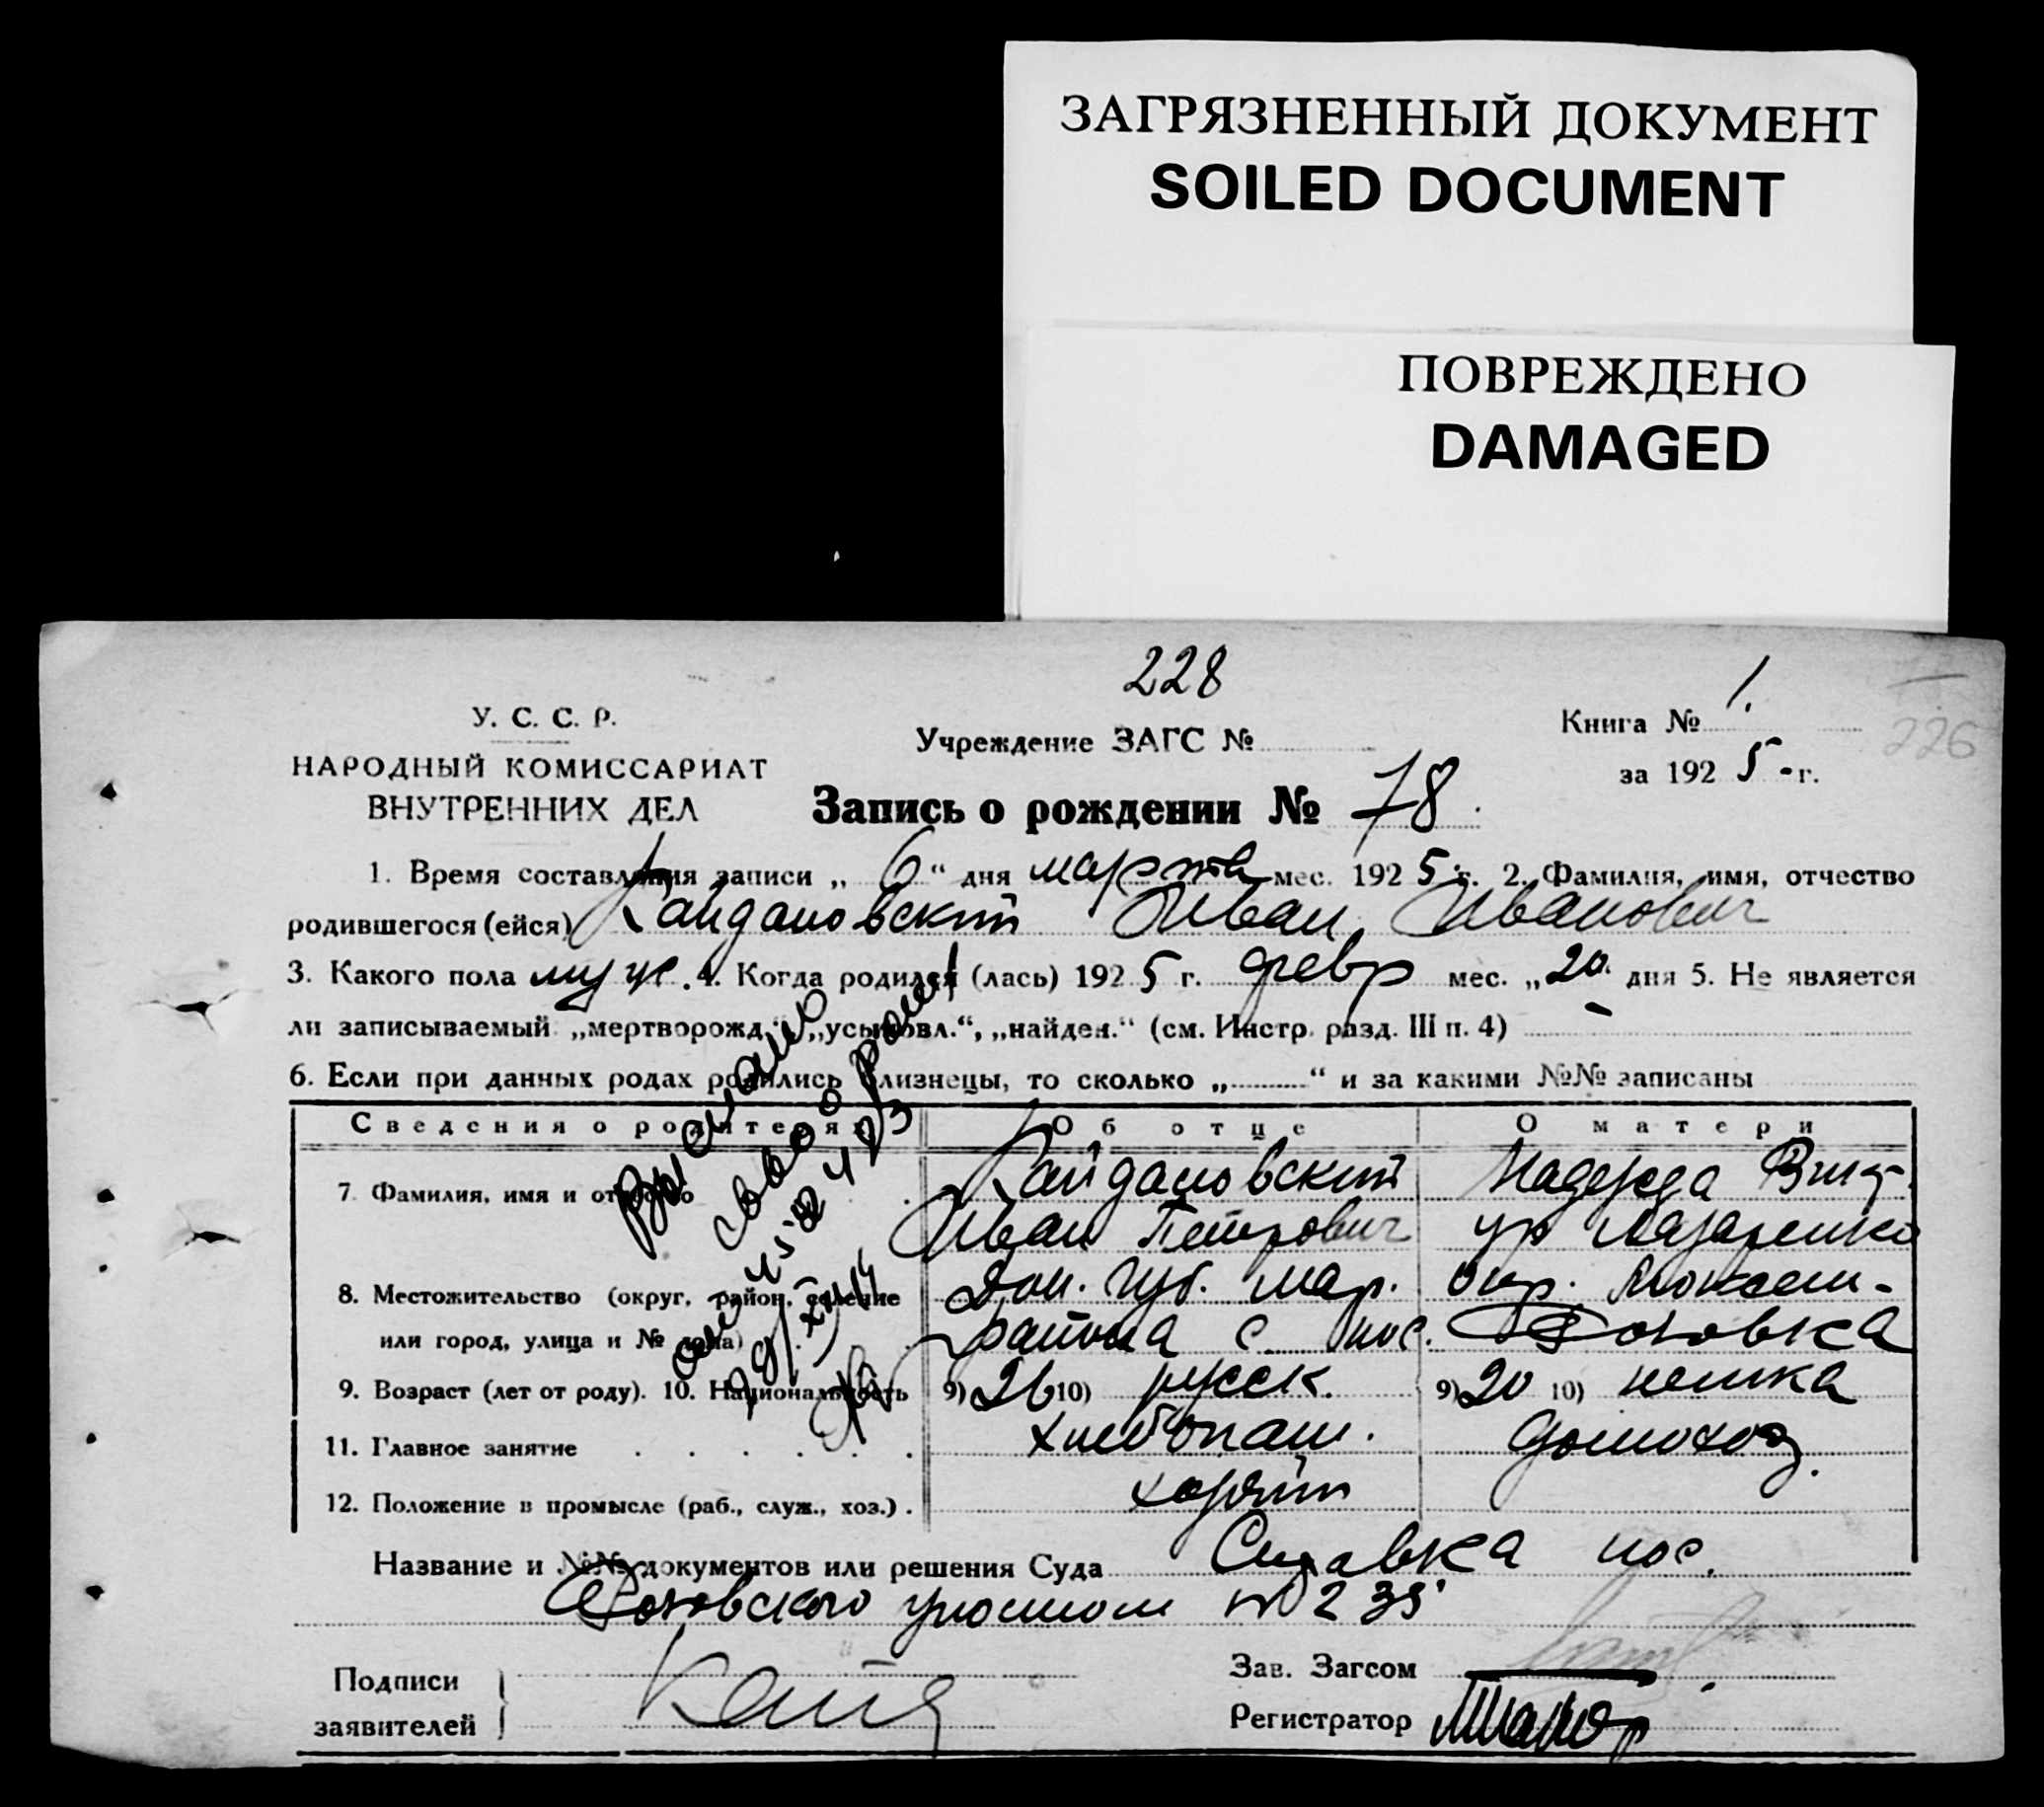 ЗАГРЯЗНЕННЫЙ ДОКУМЕНТ
SOILED DOCUMENT
ПОВРЕЖДЕНО
DAMAGED
228
У. С. С. Р.
НАРОДНЫЙ КОМИССАРИАТ
ВНУТРЕННИХ ДЕЛ
Учреждение ЗАГС №
Книга № 1.
226
за 1925-г.
Запись о рождении № 78.
1. Время составления записи „6“ дня марта мес. 1925 г. 2. Фамилия, имя, отчество
родившегося (ейся) Кайдановский Иван Иванович
3. Какого пола муж. 4. Когда родился (лась) 1925 г. февр мес. „20. дня 5. Не является
ли записываемый „мертворожд.“, „усыновл.“, „найден.“ (см. Инстр. разд. III п. 4) –
6. Если при данных родах родились близнецы, то сколько „..........“ и за какими №№ записаны
Сведения о родителях Об отце О матери
7. Фамилия, имя и отчество Кайдановский Надежда Вик.
Иван Петрович Лазаренко
8. Местожительство (округ, район, селение Дон. Губ. Мар. Окр.
или город, улица и № дома) района с пос.
9. Возраст (лет от роду). 10. Национальность 9) 26 10) русск. 9) 20 10) немка
11. Главное занятие хлебопаш. домохоз.
12. Положение в промысле (раб., служ., хоз.) . хозяин
Название и №№ документов или решения Суда Справка пос.
№ 235
Подписи
заявителей
Кайд
Зав. Загсом
Регистратор
Выдано